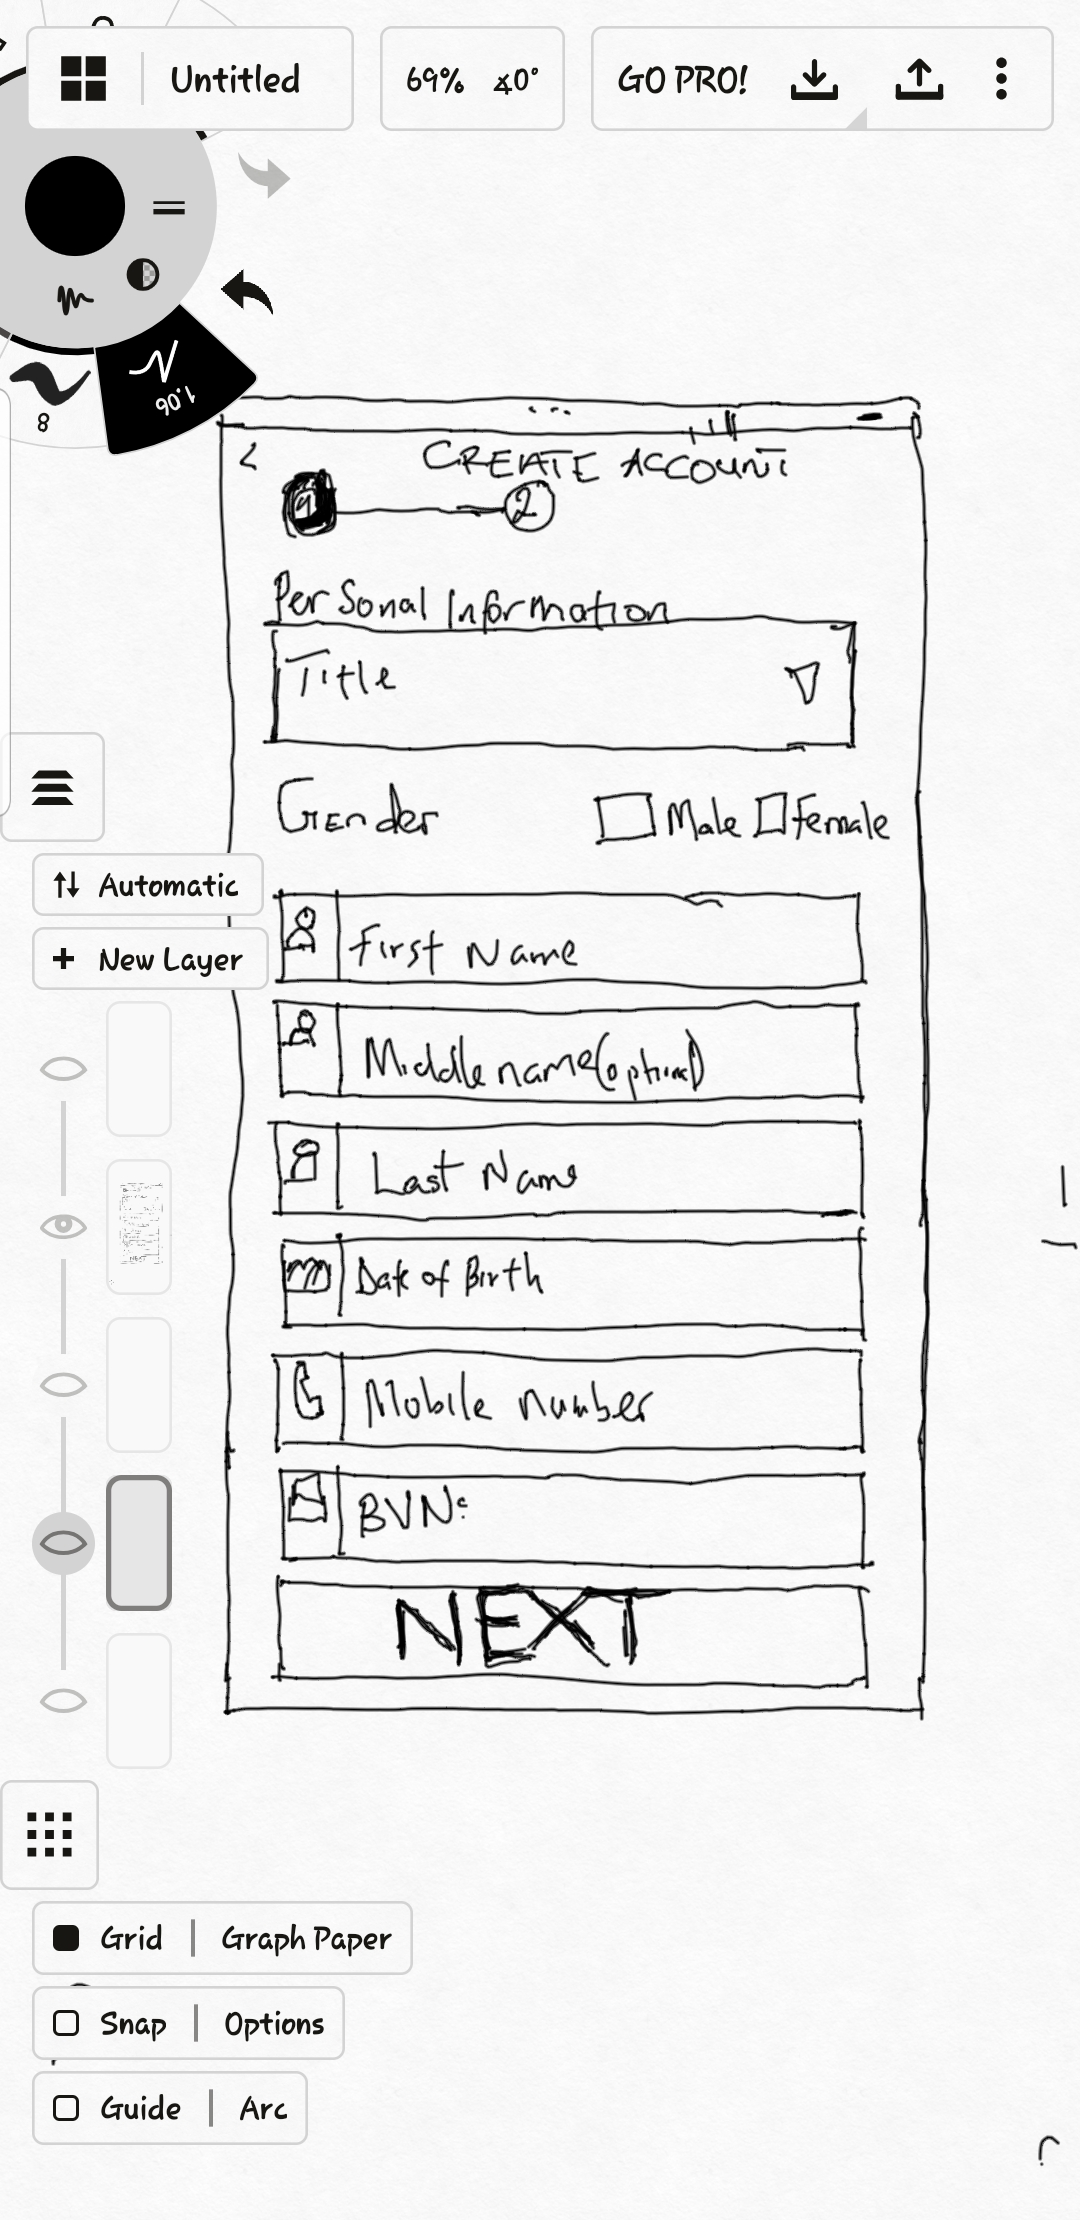 Untitled
69% ∡0°
GO PRO!
1.06
8
<
CREATE ACCOUNT
1
2
Personal Information
Title
Gender
Male
Female
Automatic
New Layer
First Name
Middle name(optional)
Last Name
Date of Birth
Mobile number
BVN:
NEXT
Grid | Graph Paper
Snap | Options
Guide | Arc